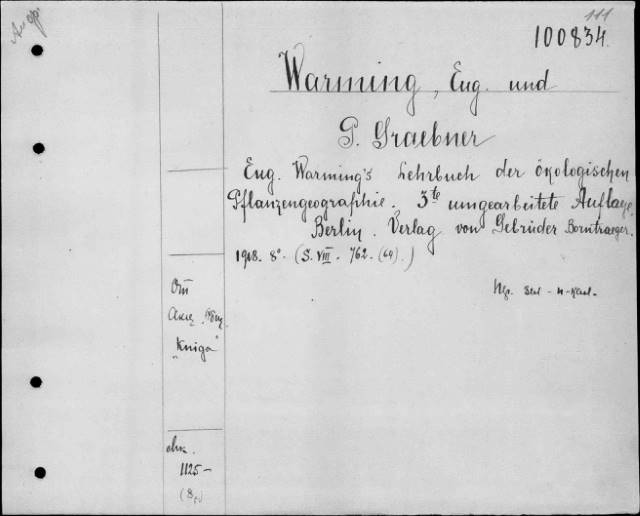 111
100834.
Warming, Eug. und
P. Graebner
Eug. Warming's Lehrbuch der ökologischen
Pflanzengeographie. 3te umgearbeitete Auflage.
Berlin. Verlag von Gebrüder Borntraeger.
1918. 8°- (S. VIII. - 762. (64).)
"Kniga"
1125-